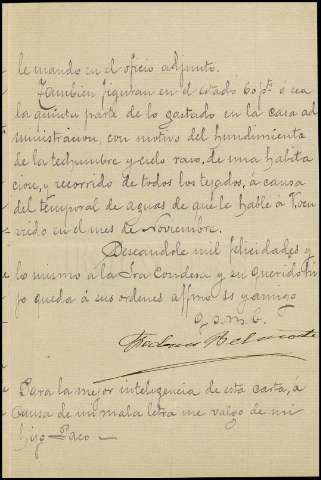 le mando en el oficio adjunto.
Tambien figuran en el estado 60 pts ó sea
la quinta parte de lo gastado en la casa ad
ministracion, con motivo del hundimiento
de la techumbre y cielo raso, de una habita
cion, y recorrido de todos los tejados, á causa
del temporal de aguas de que le hablé á V, ocu
rrido en el mes de Noviembre.
Deseandole mil felicidades y
lo mismo á la Sra Condesa y su querido hi
jo queda á sus ordenes affmo ss y amigo
q. s. m. b.
Para la mejor inteligencia de esta carta, á
causa de mi mala letra me valgo de mi
hijo Paco —